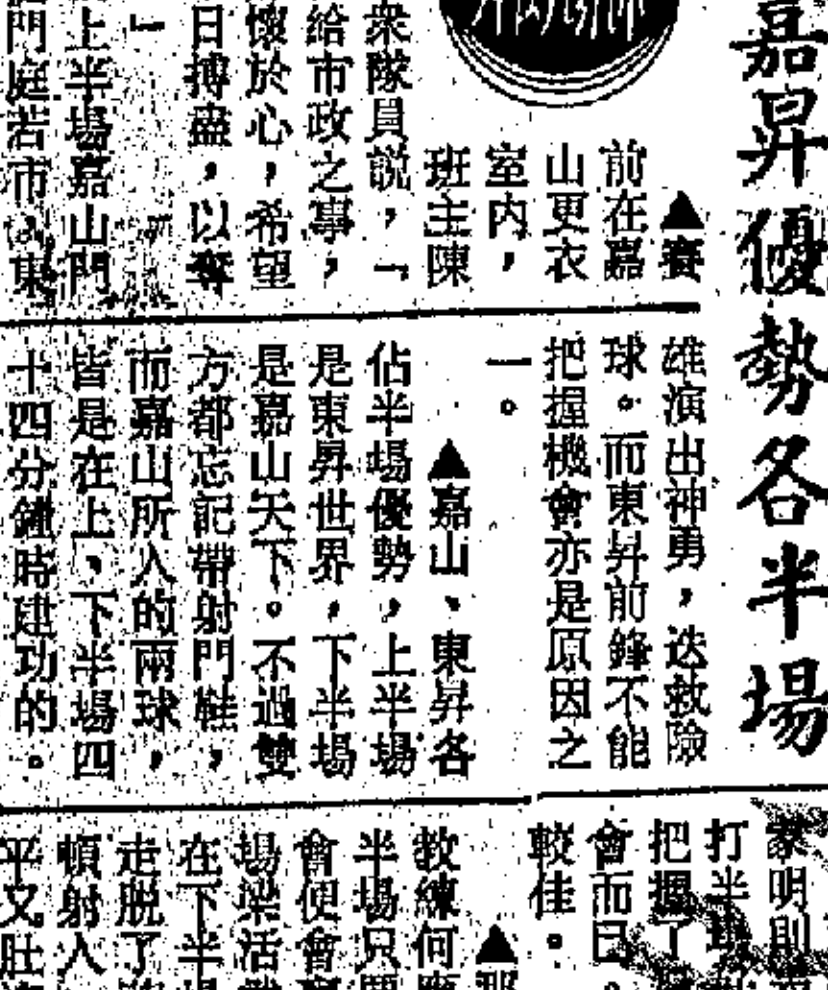 嘉昇優勢各半場
▲賽
前在嘉
山更衣
室內，
班主陳
衆隊員説，「
給市政之事，
懷於心，希望
日搏盡，以奪
」
上半場嘉山門
門庭若市，東
雄演出神勇，迭救險
球。而東昇前鋒不能
把握機會亦是原因之
一。
▲嘉山、東昇各
佔半場優勢，上半場
是東昇世界，下半場
是嘉山天下。不過雙
方都忘記帶射門鞋，
而嘉山所入的兩球，
皆是在上、下半場四
十四分鐘時建功的。
家明則
打半
把握了
會而已。
較佳。
▲那
教練何應
半場只要
會便會
場樂活
在下半場
走脱了
頓射入
平又肚